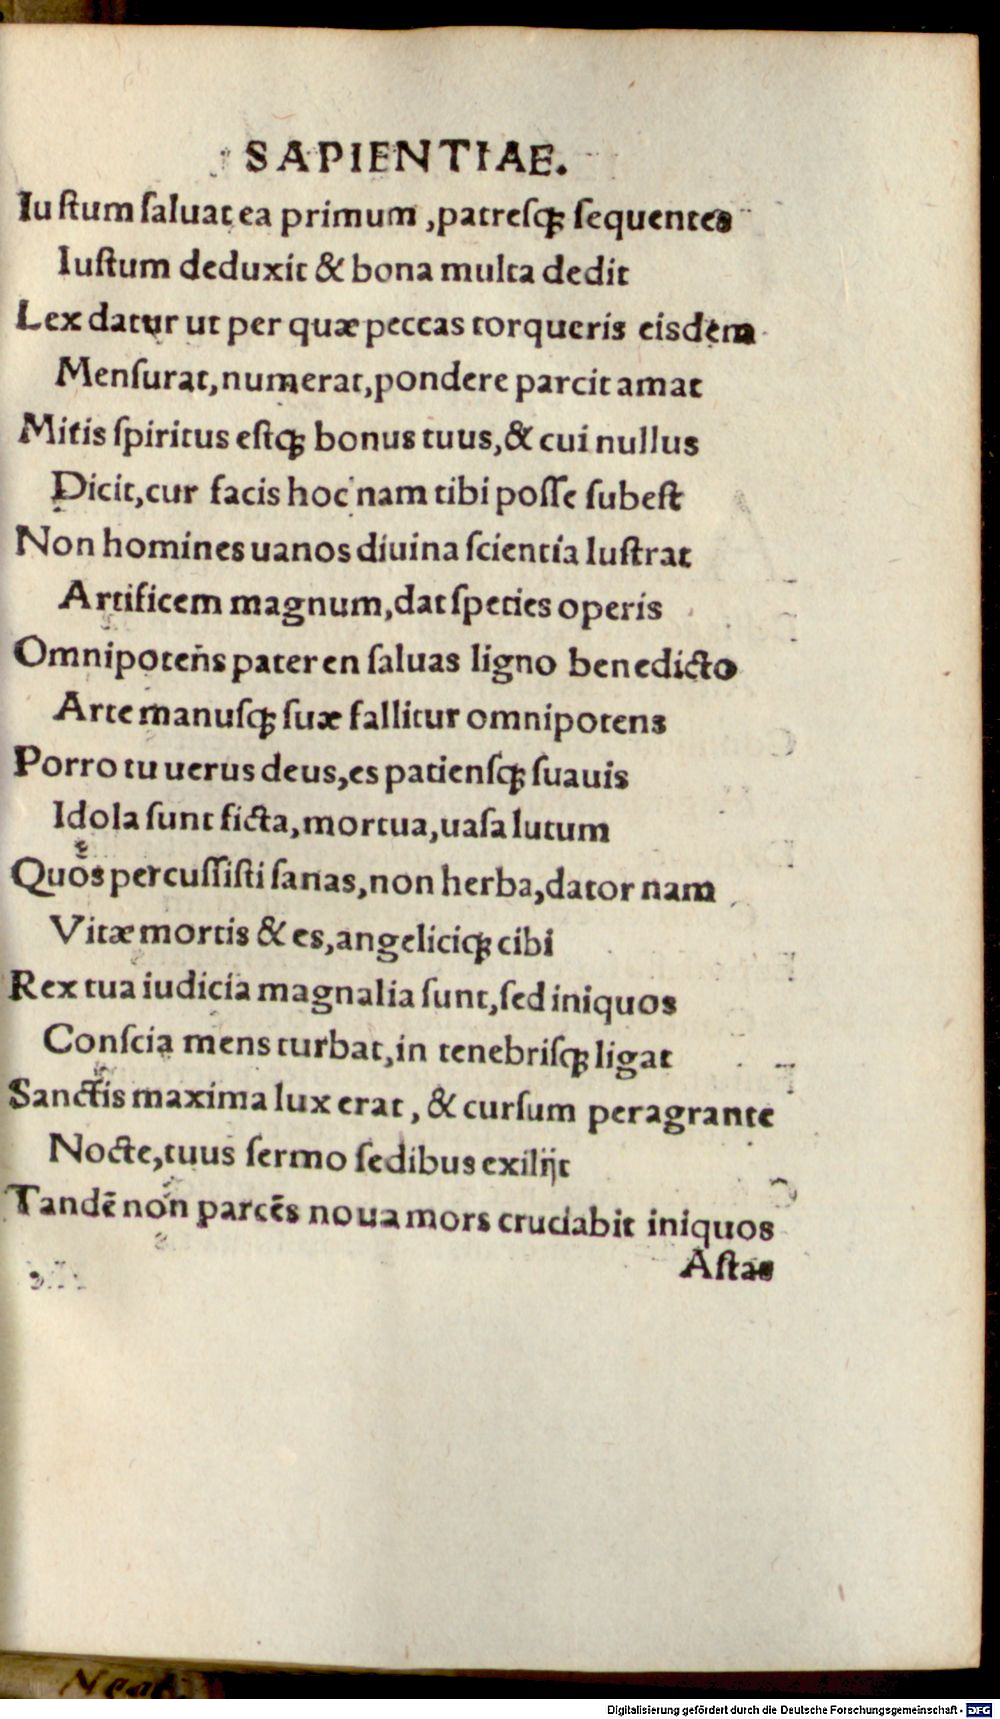 SAPIENTIAE.
Iuſtum ſaluat ea primum, patreſq; ſequentes
Iuſtum deduxit & bona multa dedit
Lex datur ut per quæ peccas torqueris eiſdem
Menſurat, numerat, pondere parcit amat
Mitis ſpiritus eſtq; bonus tuus, & cui nullus
Dicit, cur facis hoc nam tibi poſſe ſubeſt
Non homines uanos diuina ſcientia luſtrat
Artificem magnum, dat ſpecies operis
Omnipotens pater en ſaluas ligno benedicto
Arte manuſq; ſuæ fallitur omnipotens
Porro tu uerus deus, es patienſq; ſuauis
Idola ſunt ficta, mortua, uaſa lutum
Quos percuſſiſti ſanas, non herba, dator nam
Vitæ mortis & es, angeliciq; cibi
Rex tua iudicia magnalia ſunt, ſed iniquos
Conſcia mens turbat, in tenebriſq; ligat
Sanctis maxima lux erat, & curſum peragrante
Nocte, tuus ſermo ſedibus exilijt
Tandē non parcēs noua mors cruciabit iniquos
Aſtas
Digitalisierung gefördert durch die Deutsche Forschungsgemeinschaft - DFG